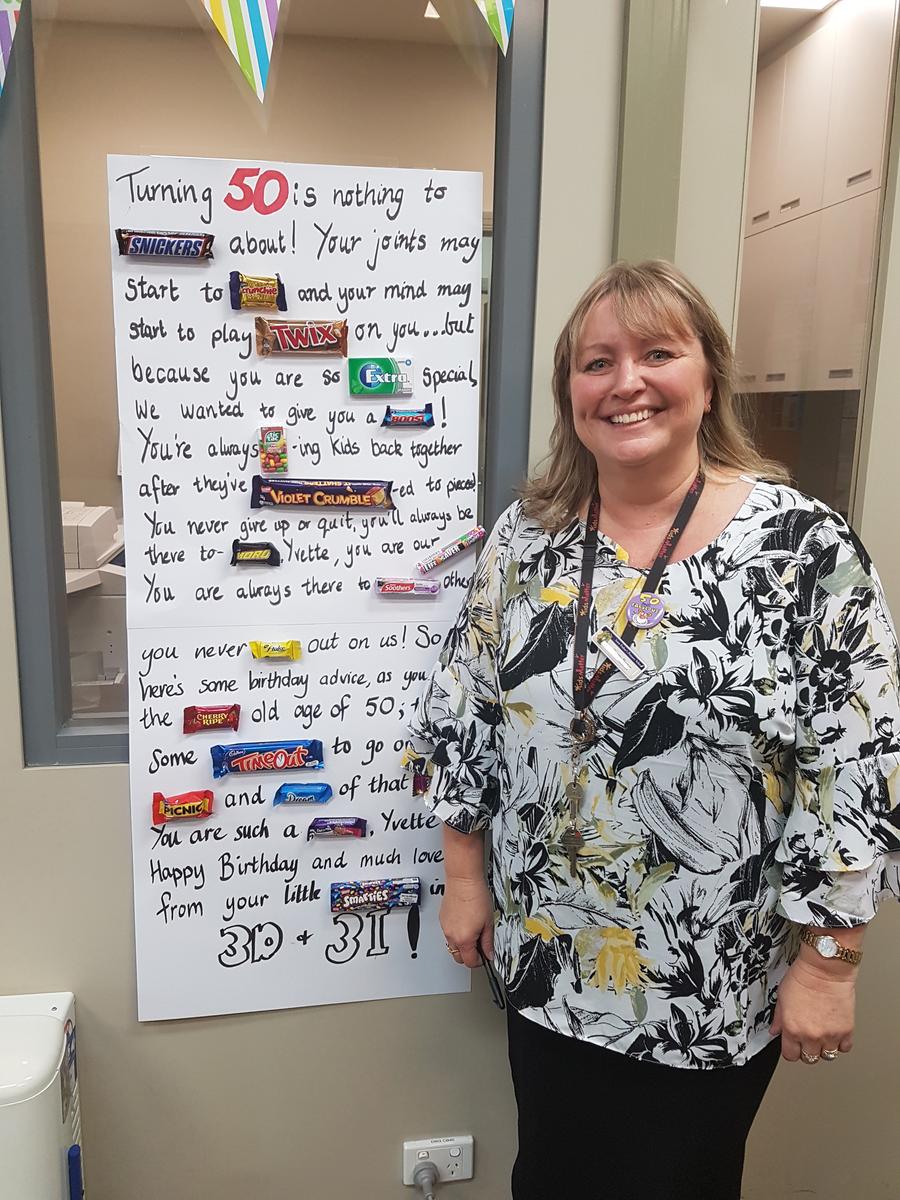 Turning 50 is nothing to
SNICKERS about! Your joints may
start to Crunchie and your mind may
start to play TWIX on you...but
because you are so Extra special,
We wanted to give you a BOOST!
You're always tic tac -ing kids back together
after they've VIOLET CRUMBLE -ed to pieces!
You never give up or quit, you'll always be
there to- MORO Yvette, you are our LIFESAVERS
You are always there to Soothers other
you never Flake out on us! So
here's some birthday advice, as you
the CHERRY RIPE old age of 50;
Some Cadbury TIMEOUT to go
PICNIC and Dream of that
You are such a , Yvette
Happy Birthday and much love
from your little SMARTIES in
3D + 3I!
50